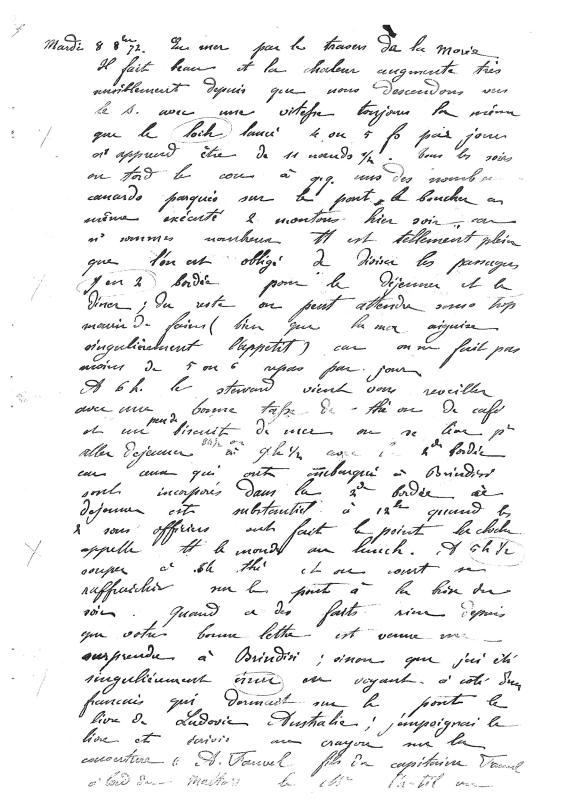 Mardi 8 8bre 72. En mer par le travers de la Morée
Il fait beau et la chaleur augmente très
sensiblement depuis que nous descendons vers
le S. avec une vitesse toujours la même
que le loch lancé 4 ou 5 fs par jour
ns apprend être de 11 nœuds 1/2. Tous les soirs
on tord le cou à q.q. uns des nombreux
canards parqués sur le pont, le boucher en
même exécuté 2 moutons hier soir, car
ns sommes nombreux tt est tellement plein
que l'on est obligé de diviser les passagers
en 2 bordées pour le déjeuner et le
dîner ; du reste on peut attendre sans trop
mourir de faim ( bien que la mer aiguise
singulièrement l'appétit ) car on ne fait pas
moins de 5 ou 6 repas par jour
A 6 h. le steward vient vous réveiller
avec une bonne tasse de thé ou de café
et un peu de biscuit de mer on se lève pr
aller déjeuner à 9 h 1/2 avec la 2de bordée
car ceux qui ont embarqué à Brindisi
sont incorporés dans la 2de bordée ce
déjeuner est substantiel à 12h quand les
2 sous officiers ont fait le point la cloche
appelle tt le monde au lunch. A 5h 1/2
souper à 8h thé et on court se
raffraichir sur le pont à la brise du
soir. Quand a des faits rien depuis
que votre bonne lettre est venue me
surprendre à Brindisi ; sinon que j'ai été
singulièrement ému en voyant à coté d'un
français qui dormait sur le pont le
livre de Ludovic Australie ; j'empoignai le
livre et suivis au crayon sur la
couverture A. Fauvel fils du capitaine Fauvel
à bord du le